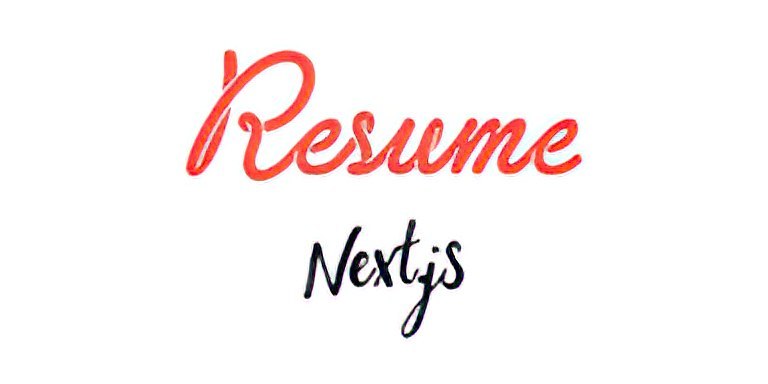 Resume
Nextjs